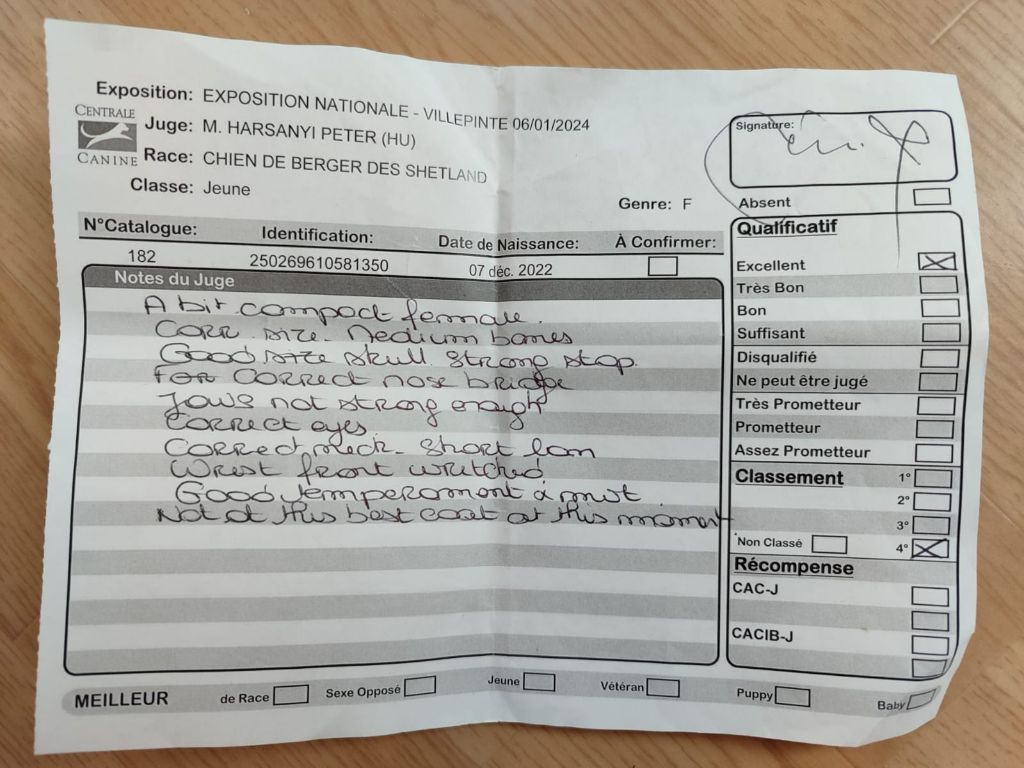 Exposition: EXPOSITION NATIONALE - VILLEPINTE 06/01/2024
CENTRALE CANINE
Juge: M. HARSANYI PETER (HU)
Race: CHIEN DE BERGER DES SHETLAND
Classe: Jeune
Genre: F
Signature:
Absent
N°Catalogue: Identification: Date de Naissance: À Confirmer:
182 250269610581350 07 déc. 2022
Notes du Juge
A bit compact female.
Corr. size. Medium bones
Good size skull. Strong stop.
For correct nose bridge
Jows not strong enough
Correct eyes
Correct neck. Short
front
Good temperament
Not at this best coat at this moment
Qualificatif
Excellent
Très Bon
Bon
Suffisant
Disqualifié
Ne peut être jugé
Très Prometteur
Prometteur
Assez Prometteur
Classement 1°
2°
3°
Non Classé 4°
Récompense
CAC-J
CACIB-J
MEILLEUR de Race Sexe Opposé Jeune Vétéran Puppy Baby